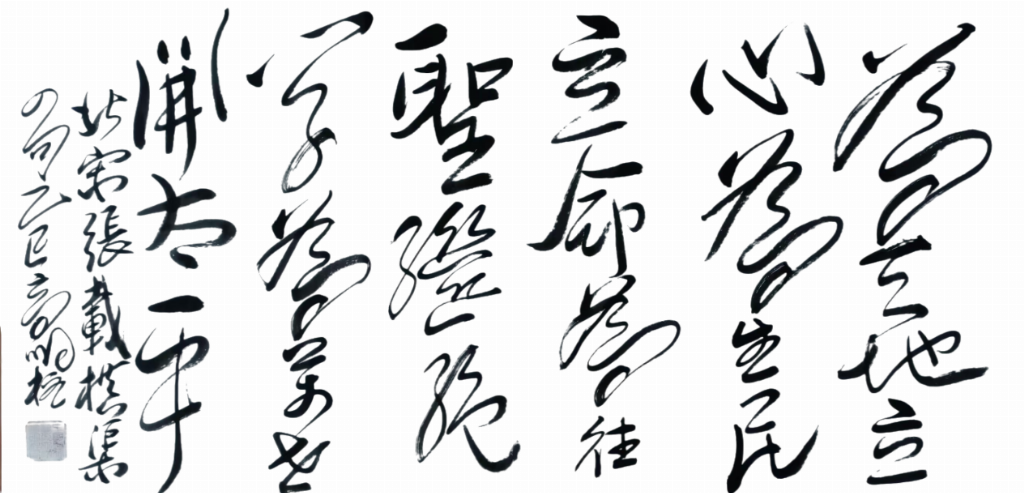 為天地立
心為生民
立命為往
聖繼絕
學為萬世
開太平
北宋張載橫渠
四句乙巳高明